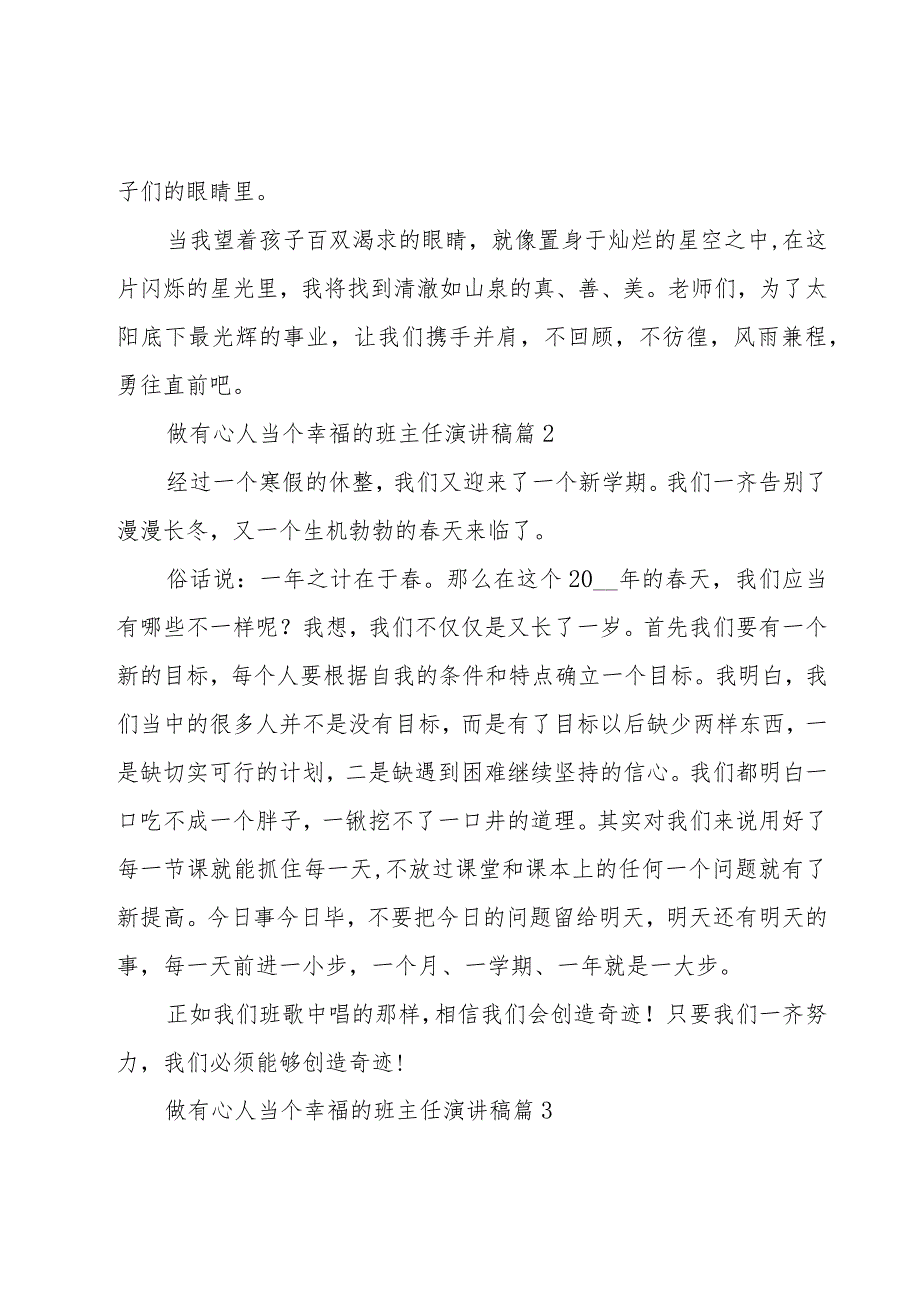 子们的眼睛里。
当我望着孩子百双渴求的眼睛，就像置身于灿烂的星空之中,在这
片闪烁的星光里，我将找到清澈如山泉的真、善、美。老师们，为了太
阳底下最光辉的事业，让我们携手并肩，不回顾，不彷徨，风雨兼程，
勇往直前吧。
做有心人当个幸福的班主任演讲稿篇2
经过一个寒假的休整，我们又迎来了一个新学期。我们一齐告别了
漫漫长冬，又一个生机勃勃的春天来临了。
俗话说：一年之计在于春。那么在这个20__年的春天，我们应当
有哪些不一样呢？我想，我们不仅仅是又长了一岁。首先我们要有一个
新的目标，每个人要根据自我的条件和特点确立一个目标。我明白，我
们当中的很多人并不是没有目标，而是有了目标以后缺少两样东西，一
是缺切实可行的计划，二是缺遇到困难继续坚持的信心。我们都明白一
口吃不成一个胖子，一锹挖不了一口井的道理。其实对我们来说用好了
每一节课就能抓住每一天,不放过课堂和课本上的任何一个问题就有了
新提高。今日事今日毕，不要把今日的问题留给明天，明天还有明天的
事，每一天前进一小步，一个月、一学期、一年就是一大步。
正如我们班歌中唱的那样，相信我们会创造奇迹！只要我们一齐努
力，我们必须能够创造奇迹!
做有心人当个幸福的班主任演讲稿篇3